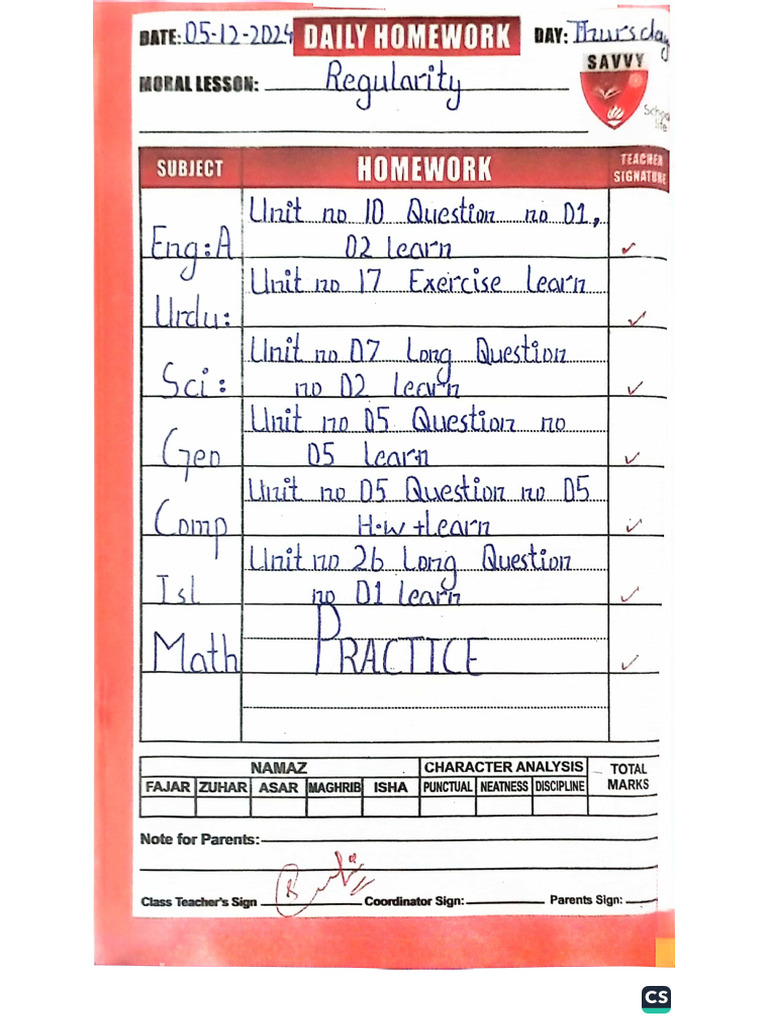 DATE: 05-12-2024 DAILY HOMEWORK DAY: Thursday
MORAL LESSON: Regularity
SAVVY
School
life
SUBJECT HOMEWORK TEACHER SIGNATURE
Eng:A Unit no 10 Question no 01,
02 learn
Urdu: Unit no 17 Exercise Learn
Sci: Unit no 07 Long Question
no 02 learn
Geo Unit no 05 Question no
05 learn
Comp Unit no 05 Question no 05
H.w + Learn
Isl Unit no 26 Long Question
no 01 learn
Math PRACTICE
NAMAZ CHARACTER ANALYSIS TOTAL MARKS
FAJAR ZUHAR ASAR MAGHRIB ISHA PUNCTUAL NEATNESS DISCIPLINE
Note for Parents:
Class Teacher's Sign Coordinator Sign: Parents Sign:
CS